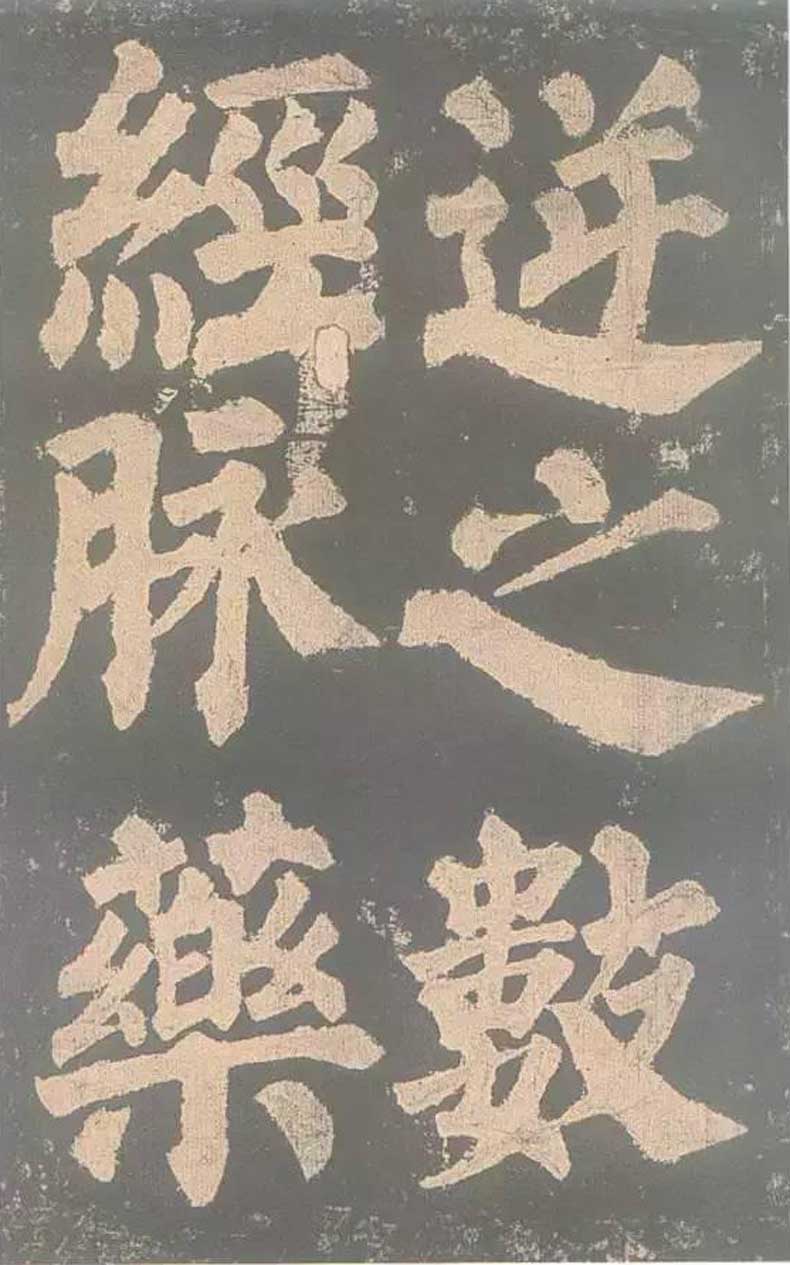 逆之數
經脉藥